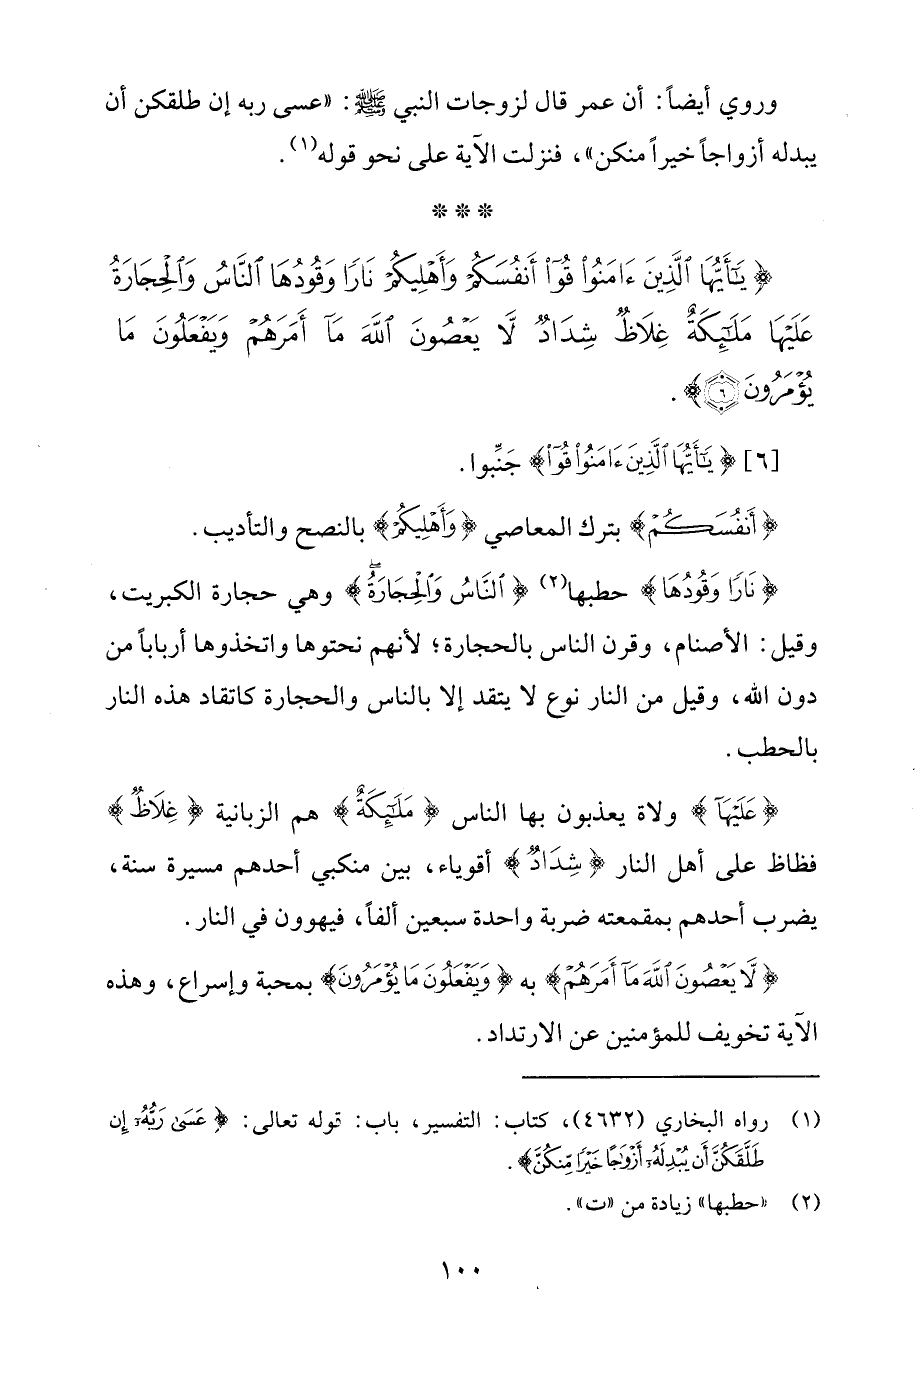 وروي أيضاً: أن عمر قال لزوجات النبي ﷺ: «عسى ربه إن طلقكن أن
يبدله أزواجاً خيراً منكن»، فنزلت الآية على نحو قوله(١).
* * *
﴿ يَٰٓأَيُّهَا ٱلَّذِينَ ءَامَنُوا۟ قُوٓا۟ أَنفُسَكُمْ وَأَهْلِيكُمْ نَارًا وَقُودُهَا ٱلنَّاسُ وَٱلْحِجَارَةُ
عَلَيْهَا مَلَٰٓئِكَةٌ غِلَاظٌ شِدَادٌ لَّا يَعْصُونَ ٱللَّهَ مَآ أَمَرَهُمْ وَيَفْعَلُونَ مَا
يُؤْمَرُونَ ٦﴾ .
[٦] ﴿ يَٰٓأَيُّهَا ٱلَّذِينَ ءَامَنُوا۟ قُوٓا۟﴾ جَنِّبوا.
﴿ أَنفُسَكُمْ﴾ بترك المعاصي ﴿وَأَهْلِيكُمْ﴾ بالنصح والتأديب.
﴿ نَارًا وَقُودُهَا﴾ حطبها(٢) ﴿ ٱلنَّاسُ وَٱلْحِجَارَةُۖ﴾ وهي حجارة الكبريت،
وقيل: الأصنام، وقرن الناس بالحجارة؛ لأنهم نحتوها واتخذوها أرباباً من
دون الله، وقيل من النار نوع لا يتقد إلا بالناس والحجارة كاتقاد هذه النار
بالحطب.
﴿عَلَيْهَآ ﴾ ولاة يعذبون بها الناس ﴿ مَلَٰٓئِكَةٌ﴾ هم الزبانية ﴿ غِلَاظٌ﴾
فظاظ على أهل النار ﴿شِدَادٌ﴾ أقوياء، بين منكبي أحدهم مسيرة سنة،
يضرب أحدهم بمقمعته ضربة واحدة سبعين ألفاً، فيهوون في النار.
﴿لَّا يَعْصُونَ ٱللَّهَ مَآ أَمَرَهُمْ﴾ به ﴿وَيَفْعَلُونَ مَا يُؤْمَرُونَ﴾ بمحبة وإسراع، وهذه
الآية تخويف للمؤمنين عن الارتداد.
(١) رواه البخاري (٤٦٣٢)، كتاب: التفسير، باب: قوله تعالى: ﴿ عَسَىٰ رَبُّهُۥٓ إِن
طَلَّقَكُنَّ أَن يُبْدِلَهُۥٓ أَزْوَٰجًا خَيْرًا مِّنكُنَّ﴾.
(٢) «حطبها» زيادة من «ت».
١٠٠